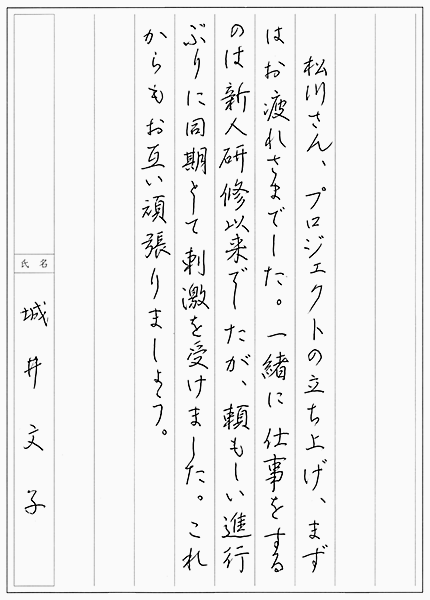 松川さん、プロジェクトの立ち上げ、まず
はお疲れさまでした。一緒に仕事をする
のは新人研修以来でしたが、頼もしい進行
ぶりに同期として刺激を受けました。これ
からもお互い頑張りましょう。
氏名
城井文子